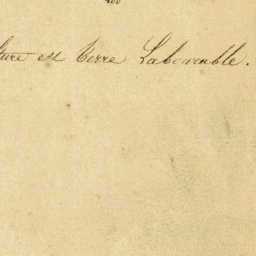 ture est terre Labourable.